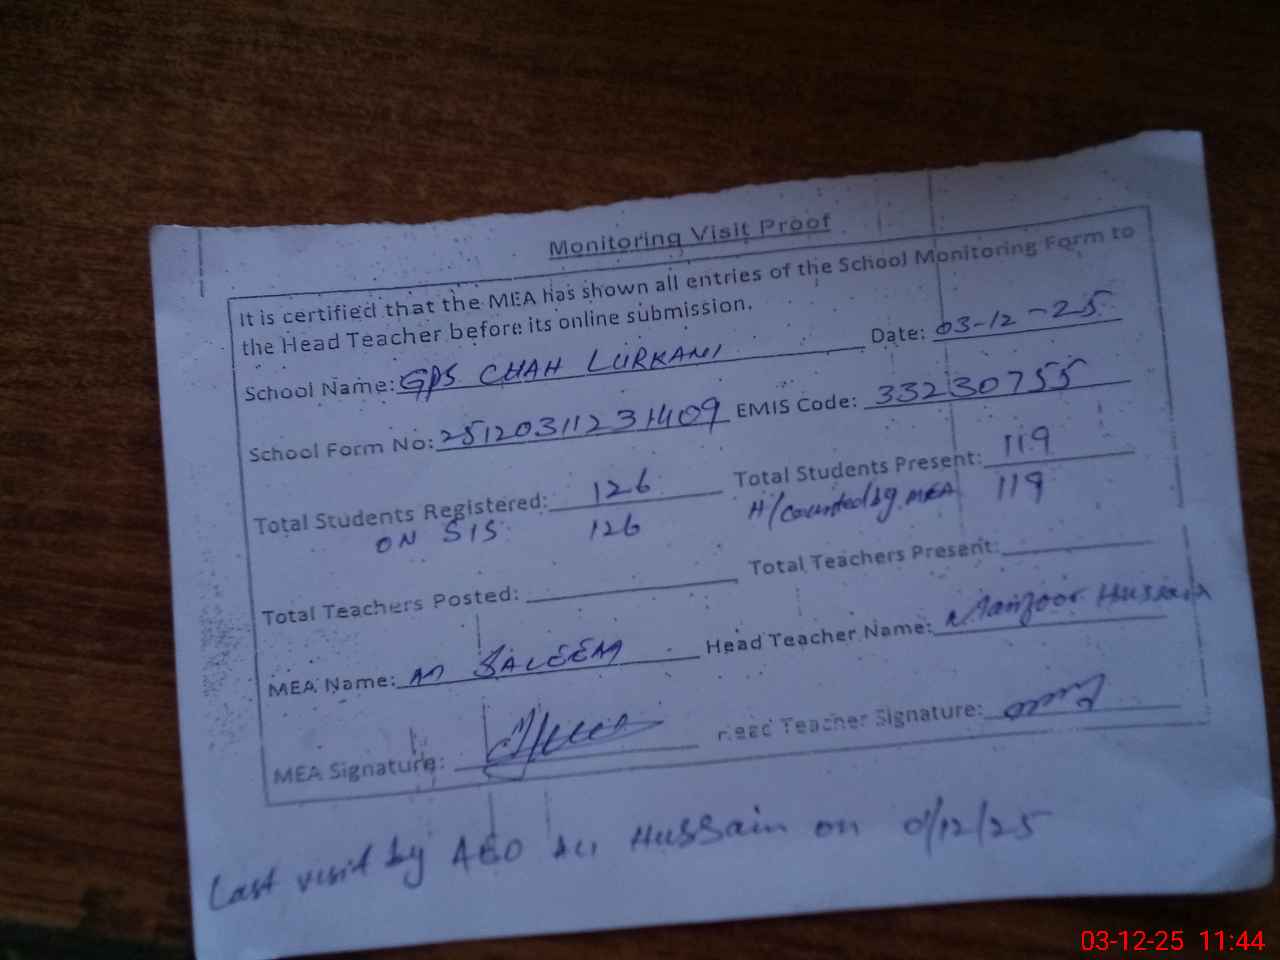 Monitoring Visit Proof
It is certified that the MEA has shown all entries of the School Monitoring Form to
the Head Teacher before its online submission.
School Name: GPS CHAH LURKANI Date: 03-12-25
School Form No: 25120311231409 EMIS Code: 33230755
Total Students Registered: 126 Total Students Present: 119
ON SIS 126 H/counted by MEA 119
Total Teachers Posted: Total Teachers Present:
MEA Name: M SALEEM Head Teacher Name: Manzoor Hussain
MEA Signature: Head Teacher Signature:
Last visit by AEO Ali Hussain on 01/12/25
03-12-25 11:44